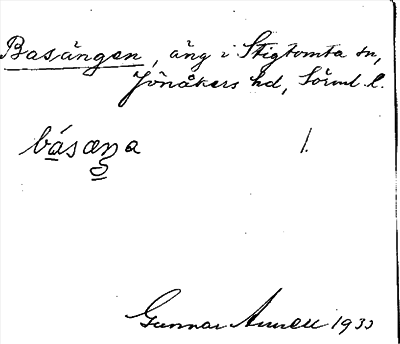 Basängen, äng i Stigtomta sn,
Jönåkers hd, Sörml. l.
básæŋa 1.
Gunnar 1933